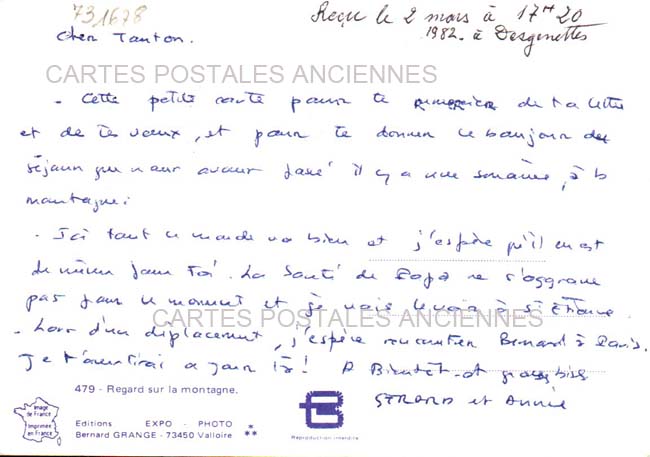 731678
Reçu le 2 mars à 17H20
1982. à Desgenettes
Cher Tonton.
CARTES POSTALES ANCIENNES
- Cette petite carte pour te remercier de ta lettre
et de tes voeux, et pour te donner le bonjour du
séjour que nous avons passé il y a une semaine, à la
montagne.
- Ici tout le monde va bien et j'espère qu'il en est
de même pour Toi. La Santé de Papa ne s'aggrave
pas pour le moment et je vais le voir à St Étienne
CARTES POSTALES ANCIENNES
- Lors d'un déplacement, j'espère rencontrer Bernard à Paris.
Je t'avertirai ce jour là! A Bientôt et grosses bises
GERARD et Annie
479 - Regard sur la montagne.
Image de France
Imprimée en France
Editions EXPO - PHOTO *
Bernard GRANGE - 73450 Valloire **
Reproduction interdite